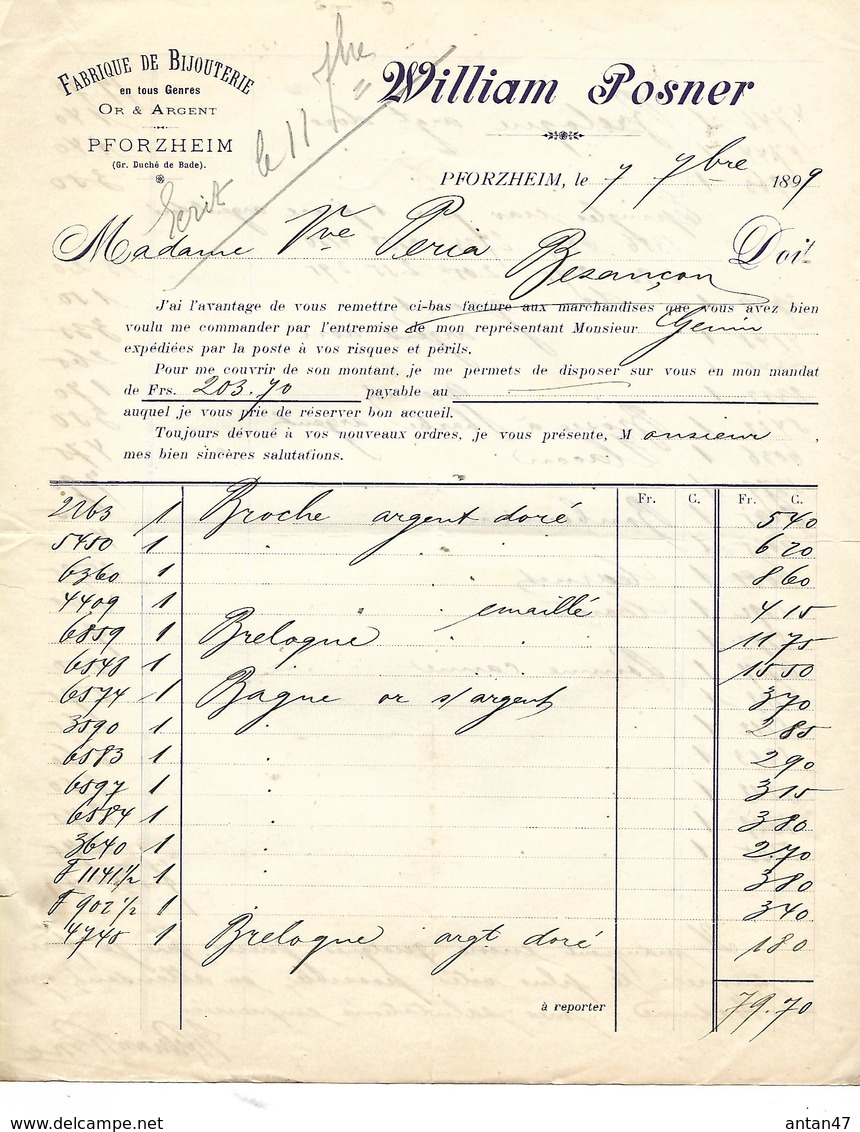 FABRIQUE DE BIJOUTERIE
en tous Genres
OR & ARGENT
PFORZHEIM
(Gr. Duché de Bade).
Ecrit le 11 7bre
William Posner
PFORZHEIM, le 7 7bre 1899
Madame Vve Peria Doit
Besançon
J'ai l'avantage de vous remettre ci-bas facture aux marchandises que vous avez bien
voulu me commander par l'entremise de mon représentant Monsieur Genin
expédiées par la poste à vos risques et périls.
Pour me couvrir de son montant, je me permets de disposer sur vous en mon mandat
de Frs. 203.70 payable au
auquel je vous prie de réserver bon accueil.
Toujours dévoué à vos nouveaux ordres, je vous présente, Monsieur,
mes bien sincères salutations.
Fr. C. Fr. C.
2263 1 Broche argent doré 540
5450 1 . . . 620
6360 1 . . . 860
4409 1 . . emaillé 415
6859 1 Breloque . . 1175
6548 1 . . . 1550
6574 1 Bague or s/argent 370
3590 1 . 285
6583 1 . 290
6597 1 . 315
6584 1 . 380
3640 1 . 270
F 1141 1/2 1 . 380
F 902 1/2 1 . 340
4745 1 Breloque argt doré 180
à reporter 79.70
antan47